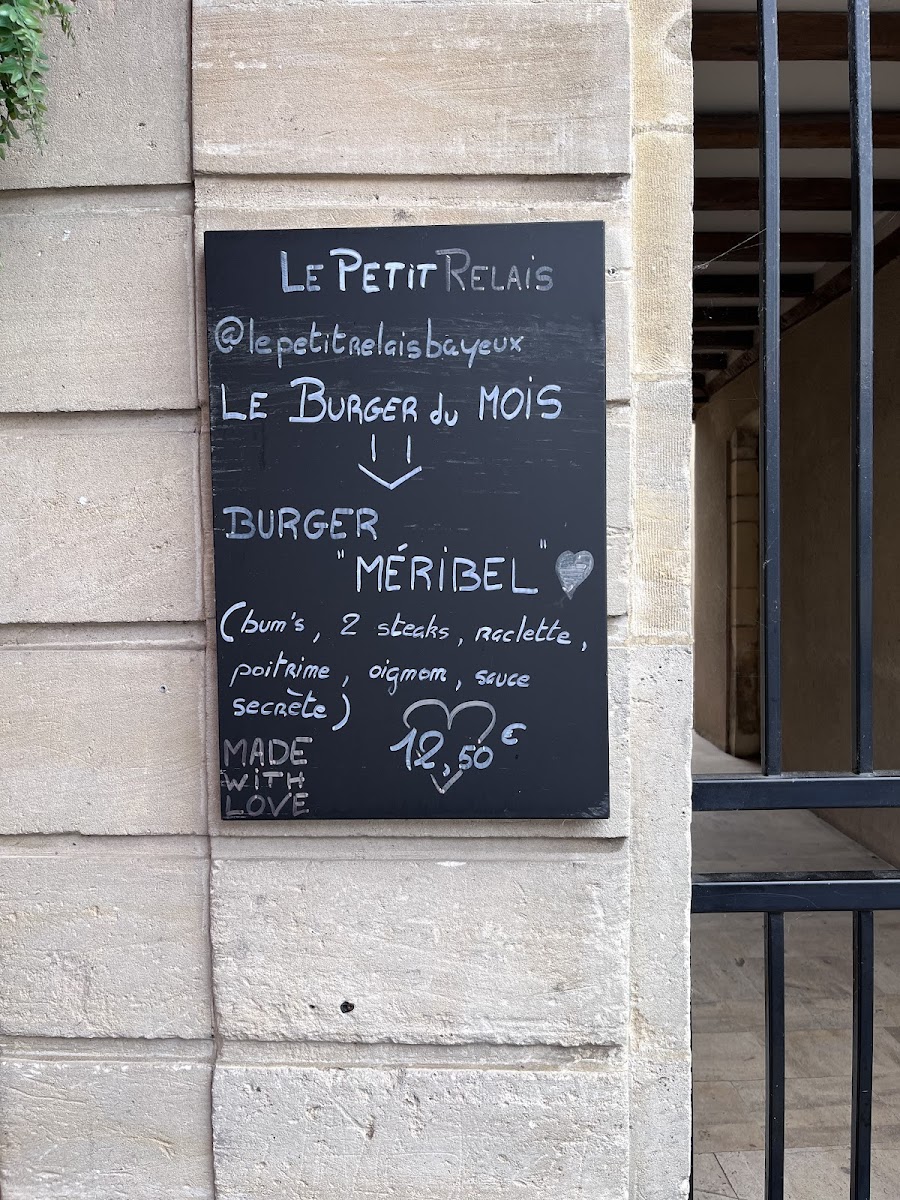 LE PETIT RELAIS
@lepetitrelaisbayeux
LE BURGER du MOIS
BURGER
"MÉRIBEL"
(bun's, 2 steaks, raclette,
poitrine, oignon, sauce
secrète)
MADE
WITH
LOVE
12,50€